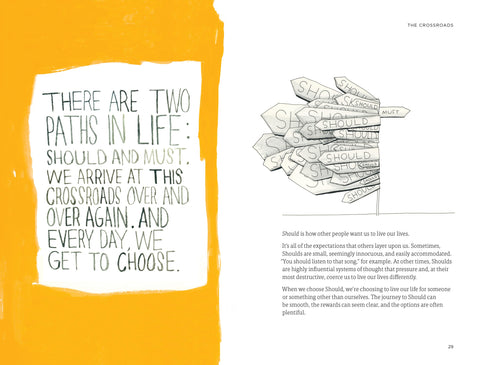 THERE ARE TWO
PATHS IN LIFE:
SHOULD AND MUST.
WE ARRIVE AT THIS
CROSSROADS OVER AND
OVER AGAIN. AND
EVERY DAY, WE
GET TO CHOOSE.
THE CROSSROADS
SHOULD
SHOULD
SHOULD
MUST
SHOULD
SHOULD
SHOULD
SHOULD
Should is how other people want us to live our lives.
It's all of the expectations that others layer upon us. Sometimes,
Shoulds are small, seemingly innocuous, and easily accommodated.
"You should listen to that song," for example. At other times, Shoulds
are highly influential systems of thought that pressure and, at their
most destructive, coerce us to live our lives differently.
When we choose Should, we're choosing to live our life for someone
or something other than ourselves. The journey to Should can
be smooth, the rewards can seem clear, and the options are often
plentiful.
29